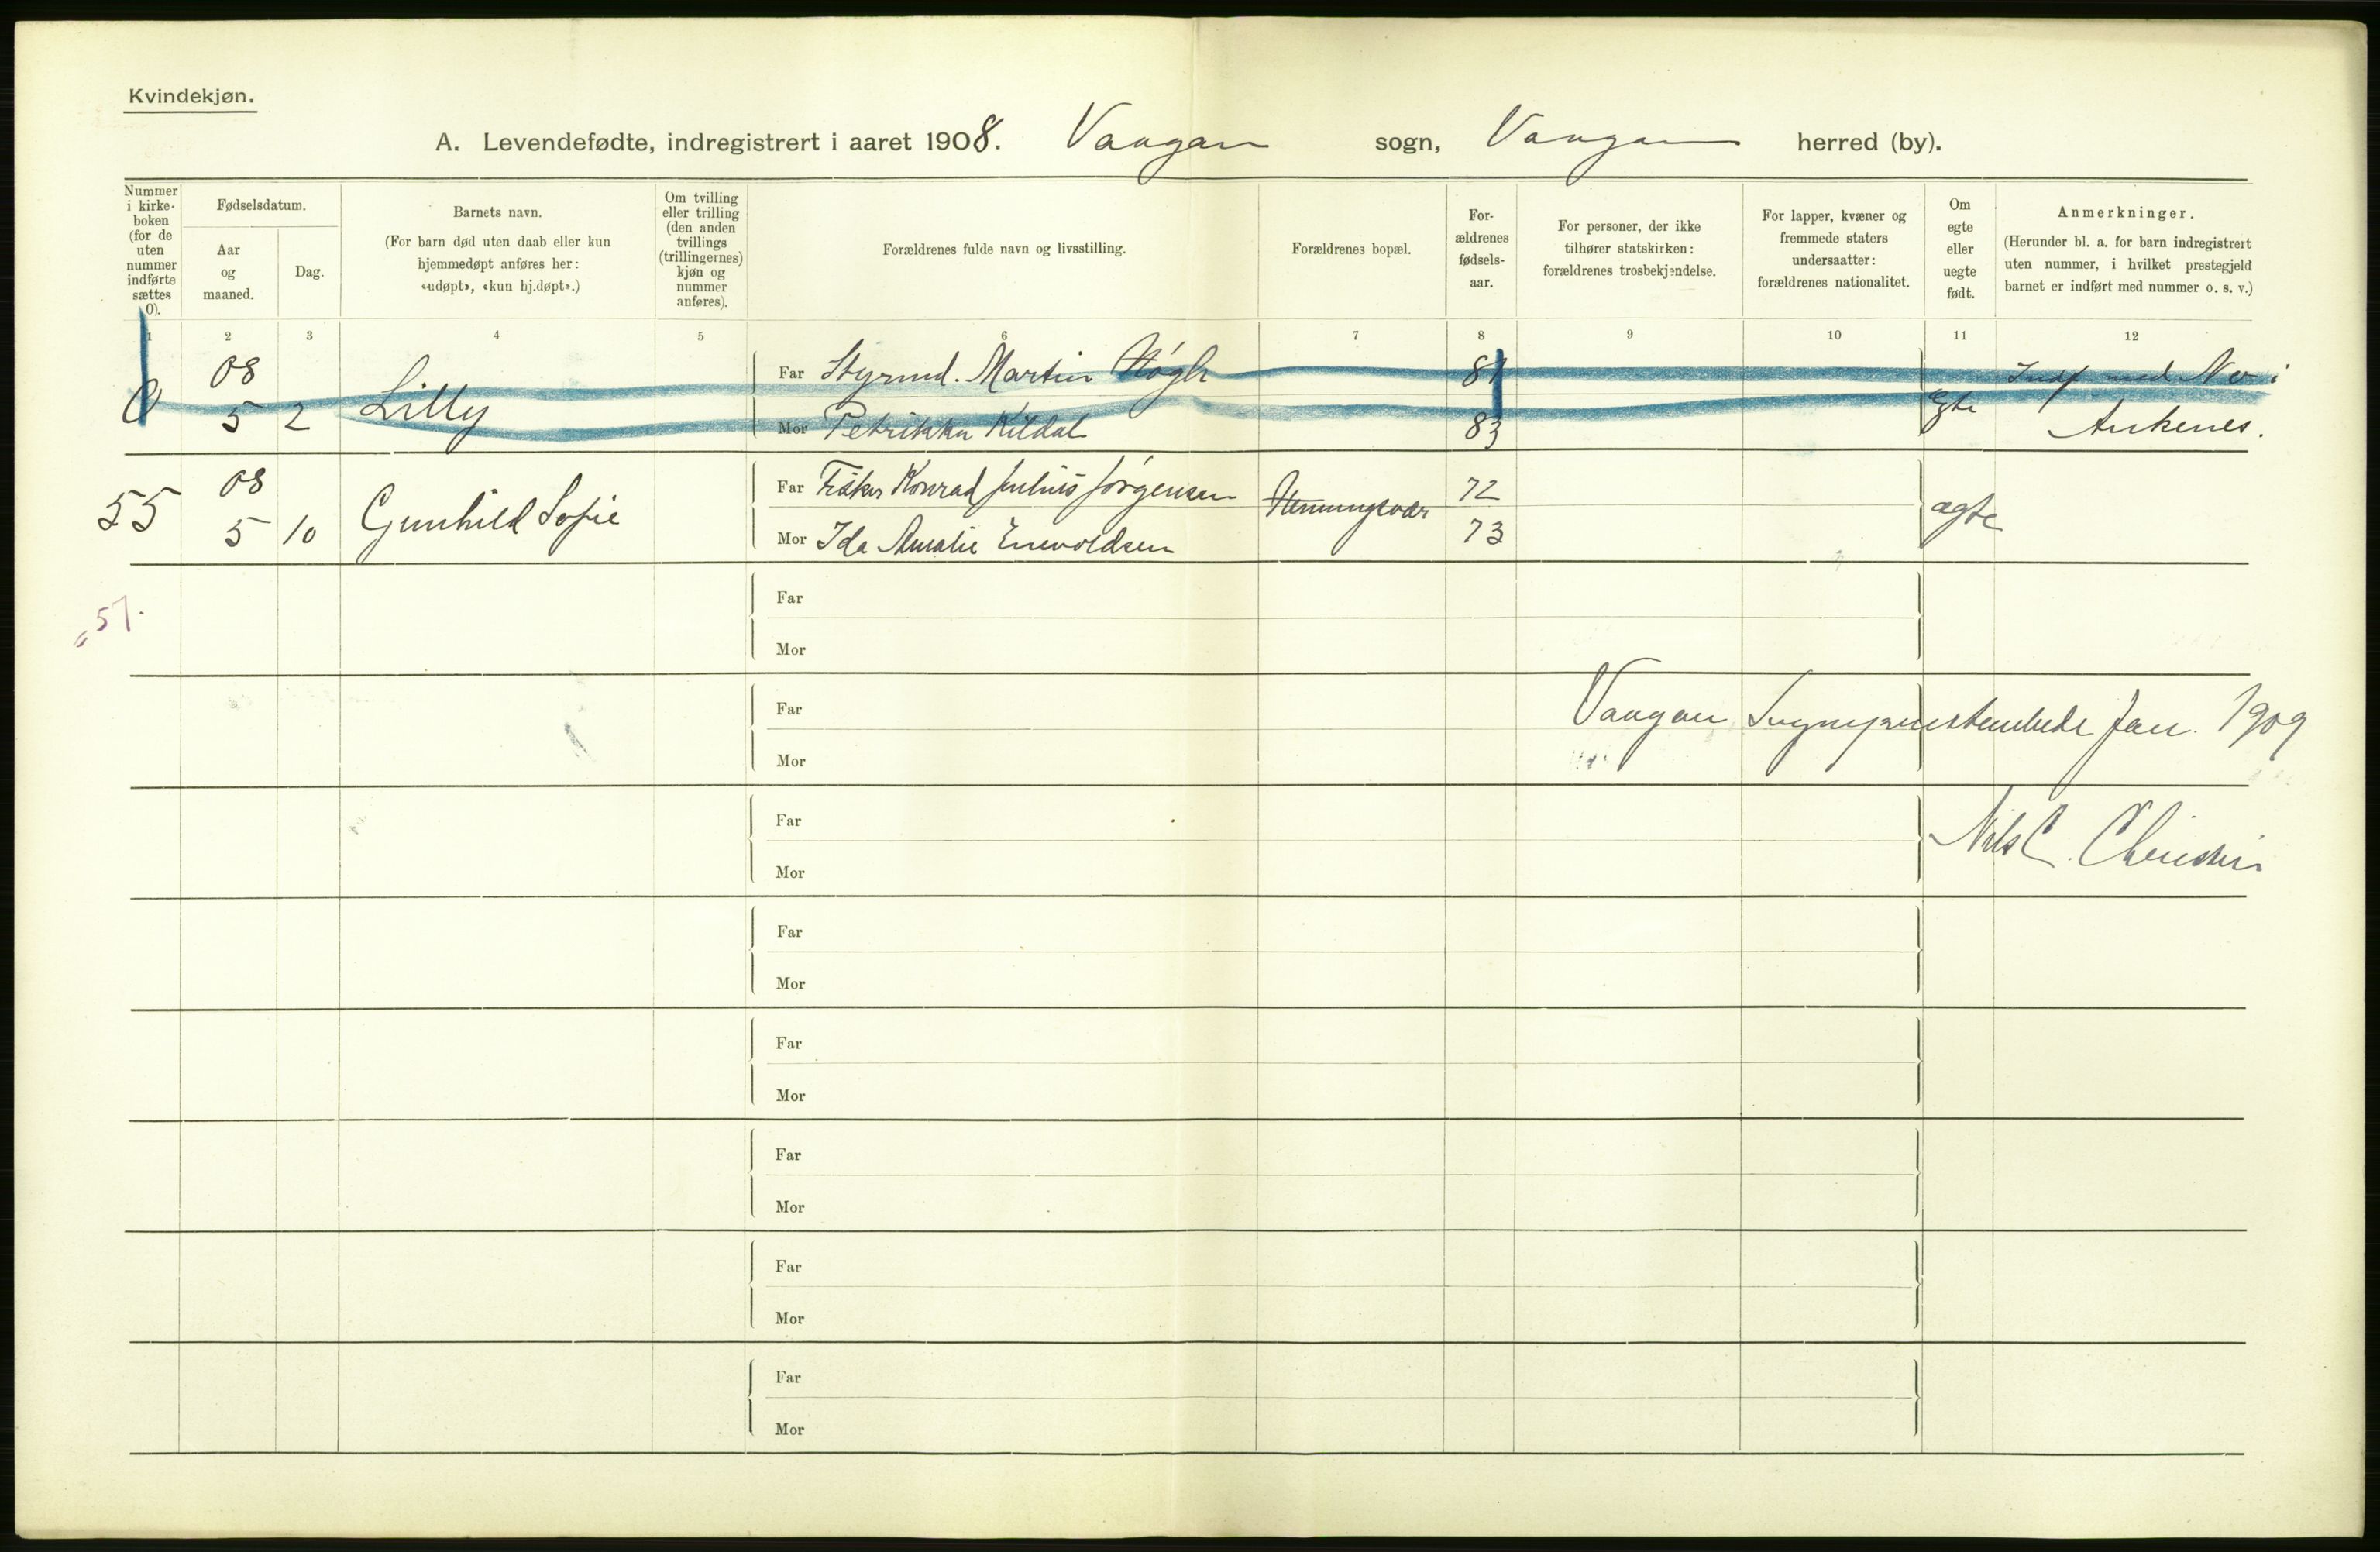 Kvindekjøn.
A. Levendefødte, indregistrert i aaret 1908. Vaagan sogn, Vaagan herred (by).
Nummer i kirke-boken (for de uten nummer indførte sættes 0).
Fødselsdatum.
Aar og maaned.
Dag.
Barnets navn.
(For barn død uten daab eller kun hjemmedøpt anføres her: «udøpt», «kun hj.døpt».)
Om tvilling eller trilling (den anden tvillings (trillingernes) kjøn og nummer anføres).
Forældrenes fulde navn og livsstilling.
Forældrenes bopæl.
For-ældrenes fødsels-aar.
For personer, der ikke tilhører statskirken: forældrenes trosbekjendelse.
For lapper, kvæner og fremmede staters undersaatter: forældrenes nationalitet.
Om egte eller uegte født.
Anmerkninger.
(Herunder bl. a. for barn indregistrert uten nummer, i hvilket prestegjeld barnet er indført med nummer o. s. v.)
1 2 3 4 5 6 7 8 9 10 11 12
0 08 5 2 Lilly
Far Styrmd. Martin Høgh 81
Mor Petrikka Kildal 83
ægte
Indf med No i
Ankenes.
55 08 5 10 Gunhild Sofie
Far Fisker Konrad Julius Jørgensen Henningsvær 72
Mor Ida Amalie Enevoldsen 73
ægte
Far
57.
Mor
Far
Vaagan Sogneprestembede Jan. 1909
Mor
Far
Nils C.
Mor
Far
Mor
Far
Mor
Far
Mor
Far
Mor
Far
Mor